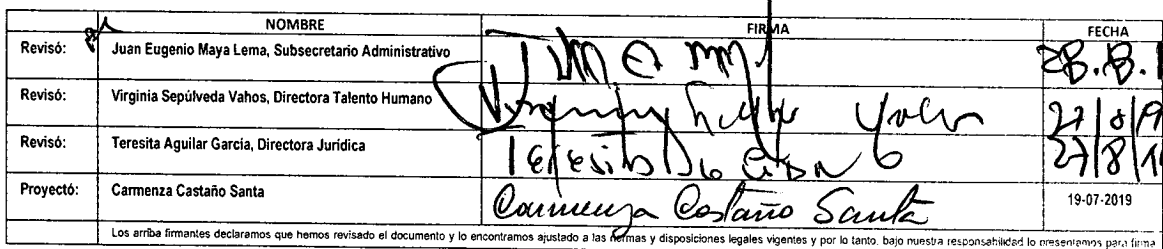 NOMBRE FIRMA FECHA
Revisó: Juan Eugenio Maya Lema, Subsecretario Administrativo
Revisó: Virginia Sepúlveda Vahos, Directora Talento Humano 27/8/19
Revisó: Teresita Aguilar García, Directora Jurídica 27/8/1
Proyectó: Carmenza Castaño Santa Carmenza Castaño Santa 19-07-2019
Los arriba firmantes declaramos que hemos revisado el documento y lo encontramos ajustado a las normas y disposiciones legales vigentes y por lo tanto, bajo nuestra responsabilidad lo presentamos para firma